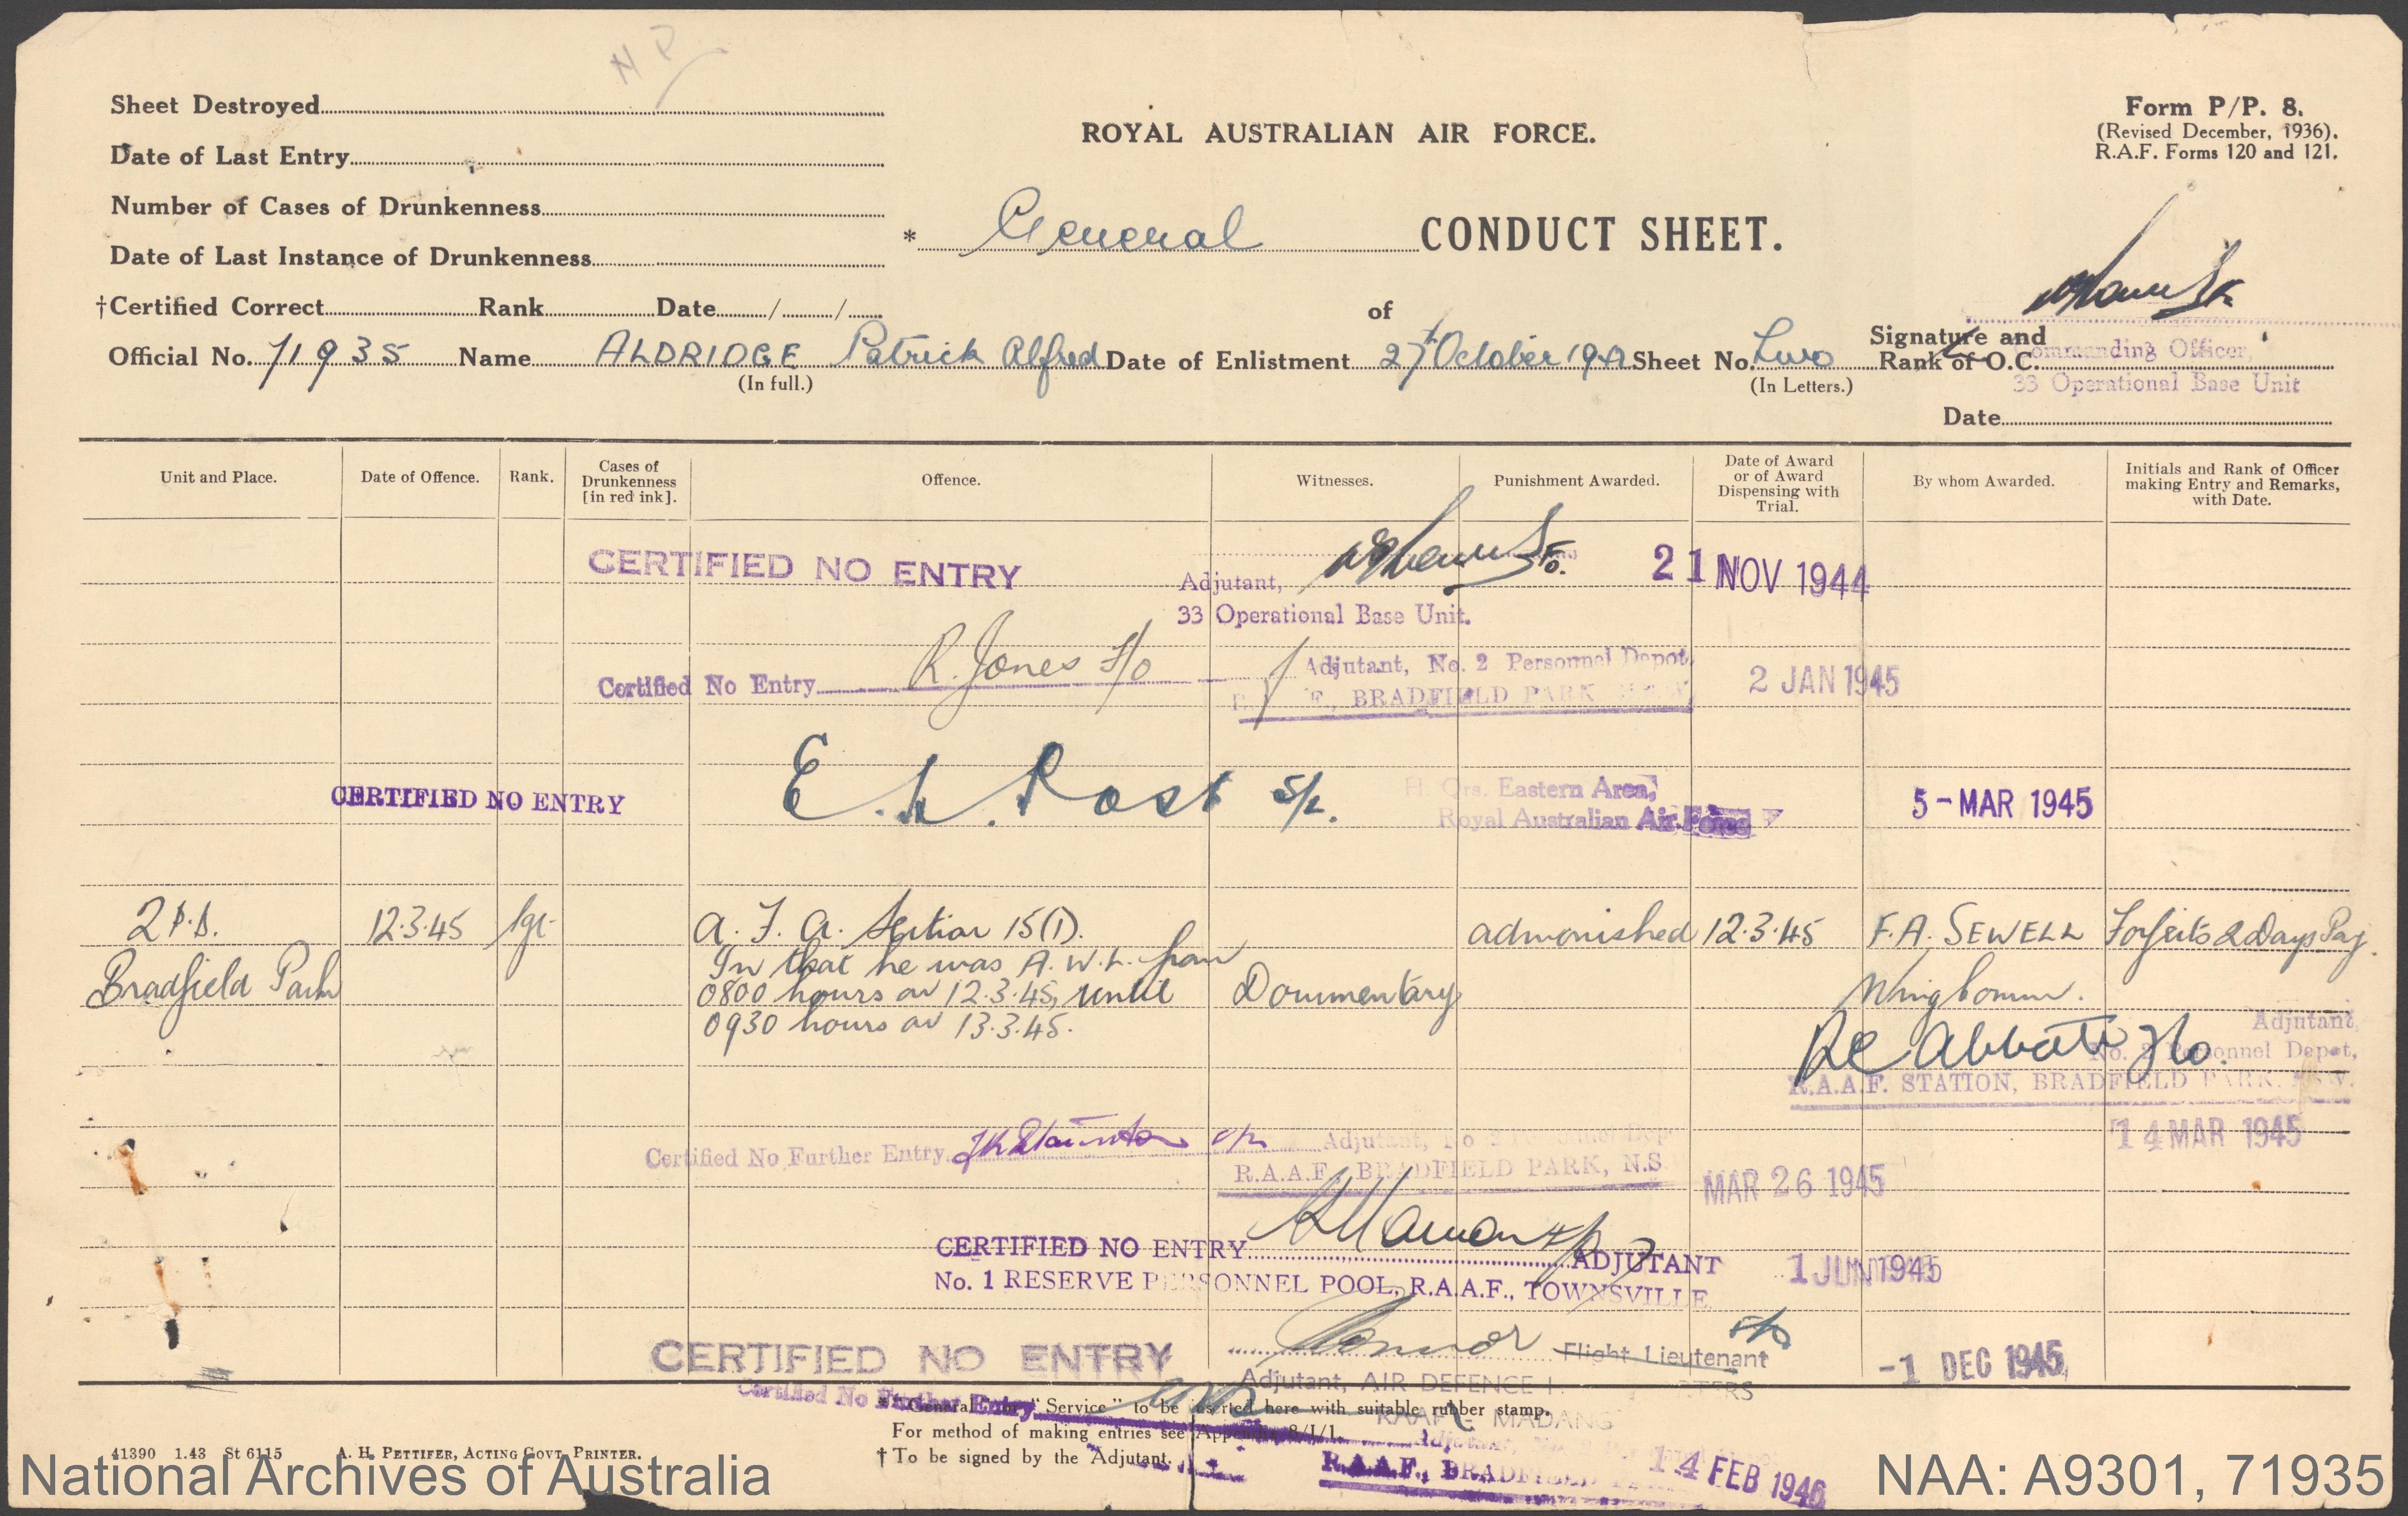 Sheet Destroyed
Date of Last Entry
Number of Cases of Drunkenness
Date of Last Instance of Drunkenness
†Certified Correct Rank Date / /
ROYAL AUSTRALIAN AIR FORCE.
* General CONDUCT SHEET.
of
Form P/P. 8.
(Revised December, 1936).
R.A.F. Forms 120 and 121.
Official No. 71935 Name ALDRIDGE Patrick Alfred Date of Enlistment 27th October 1941 Sheet No. Two
(In full.) (In Letters.)
Signature and
Rank of O.C. Commanding Officer,
33 Operational Base Unit
Date
Unit and Place. Date of Offence. Rank. Cases of Drunkenness [in red ink]. Offence. Witnesses. Punishment Awarded. Date of Award or of Award Dispensing with Trial. By whom Awarded. Initials and Rank of Officer making Entry and Remarks, with Date.
CERTIFIED NO ENTRY F/O. 21 NOV 1944
Adjutant,
33 Operational Base Unit.
Certified No Entry R. Jones F/O Adjutant, No. 2 Personnel Depot, 2 JAN 1945
BRADFIELD PARK N.S.W.
CERTIFIED NO ENTRY E. L. Post S/L. H. Qrs. Eastern Area, 5-MAR 1945
Royal Australian Air Force
2 P.D. 12.3.45 Sgt A. F. A. Section 15(1). admonished 12.3.45 F.A. SEWELL Forfeits 2 Days Pay.
Bradfield Park In that he was A.W.L. from
0800 hours on 12.3.45, until Documentary Wing Comm.
0930 hours on 13.3.45.
Adjutant,
R C Abbott F/O. No. 2 Personnel Depot,
R.A.A.F. STATION, BRADFIELD PARK. N.S.W.
14 MAR 1945
Certified No Further Entry Adjutant, No 2 Personnel Dep
R.A.A.F. BRADFIELD PARK, N.S. MAR 26 1945
CERTIFIED NO ENTRY ADJUTANT 1 JUN 1945
No. 1 RESERVE PERSONNEL POOL, R.A.A.F., TOWNSVILLE
CERTIFIED NO ENTRY Flight Lieutenant -1 DEC 1945
Adjutant, AIR DEFENCE
RAAF MADANG
Certified No Further Entry
* "General" or "Service" to be inserted here with suitable rubber stamp.
For method of making entries see Appendix 8/1/1.
† To be signed by the Adjutant.
R.A.A.F., BRADFIELD 14 FEB 1946
41390 1.43 St 6115 A. H. PETTIFER, ACTING GOVT. PRINTER.
National Archives of Australia
NAA: A9301, 71935